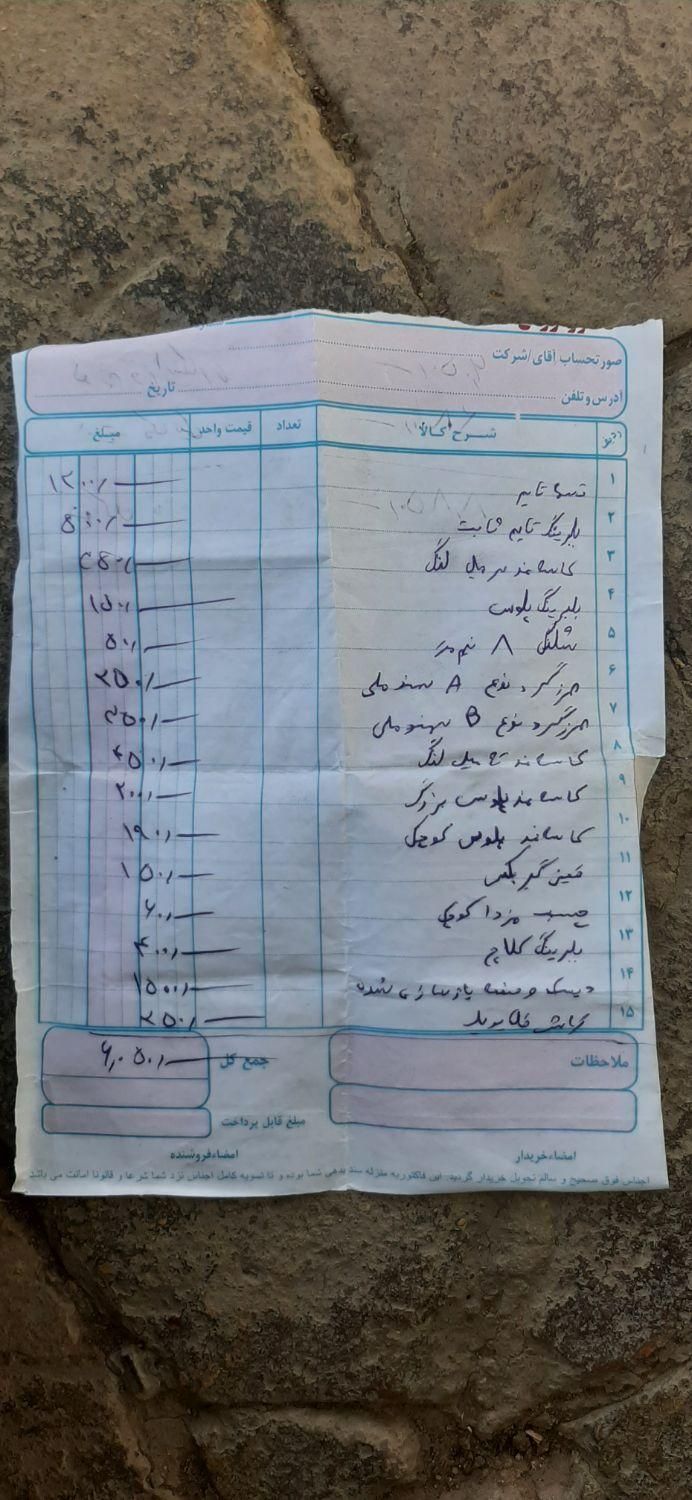 صورتحساب آقای/شرکت
آدرس و تلفن تاریخ
ردیف شرح کالا تعداد قیمت واحد مبلغ
۱ تسمه تایم ۱۲۰۰/
۲ بلبرینگ تایم ثابت
۳ کاسه نمد سر میل لنگ
۴ بلبرینگ پلوس ۱۵۰/
۵ شلنگ ۸ نیم متر ۵۰/
۶ هرزگرد نوع A سمند ملی ۳۵۰/
۷ هرزگرد نوع B سمند ملی
۸ کاسه نمد ته میل لنگ ۴۵۰/
۹ کاسه نمد پلوس بزرگ ۲۰۰/
۱۰ کاسه نمد پلوس کوچک ۱۹۰/
۱۱ ۱۵۰/
۱۲ چسب مزدا کوچک ۶۰/
۱۳ بلبرینگ کلاچ ۴۰۰/
۱۴ دیسک و صفحه بازسازی شده ۱۵۰۰/
۱۵ ۳۵۰/
ملاحظات جمع کل ۶,۰۵۰/
مبلغ قابل پرداخت
امضاءخریدار امضاءفروشنده
اجناس فوق صحیح و سالم تحویل خریدار گردید. این فاکتور به منزله سند بدهی شما بوده و تا تسویه کامل اجناس نزد شما شرعا و قانونا امانت می باشد